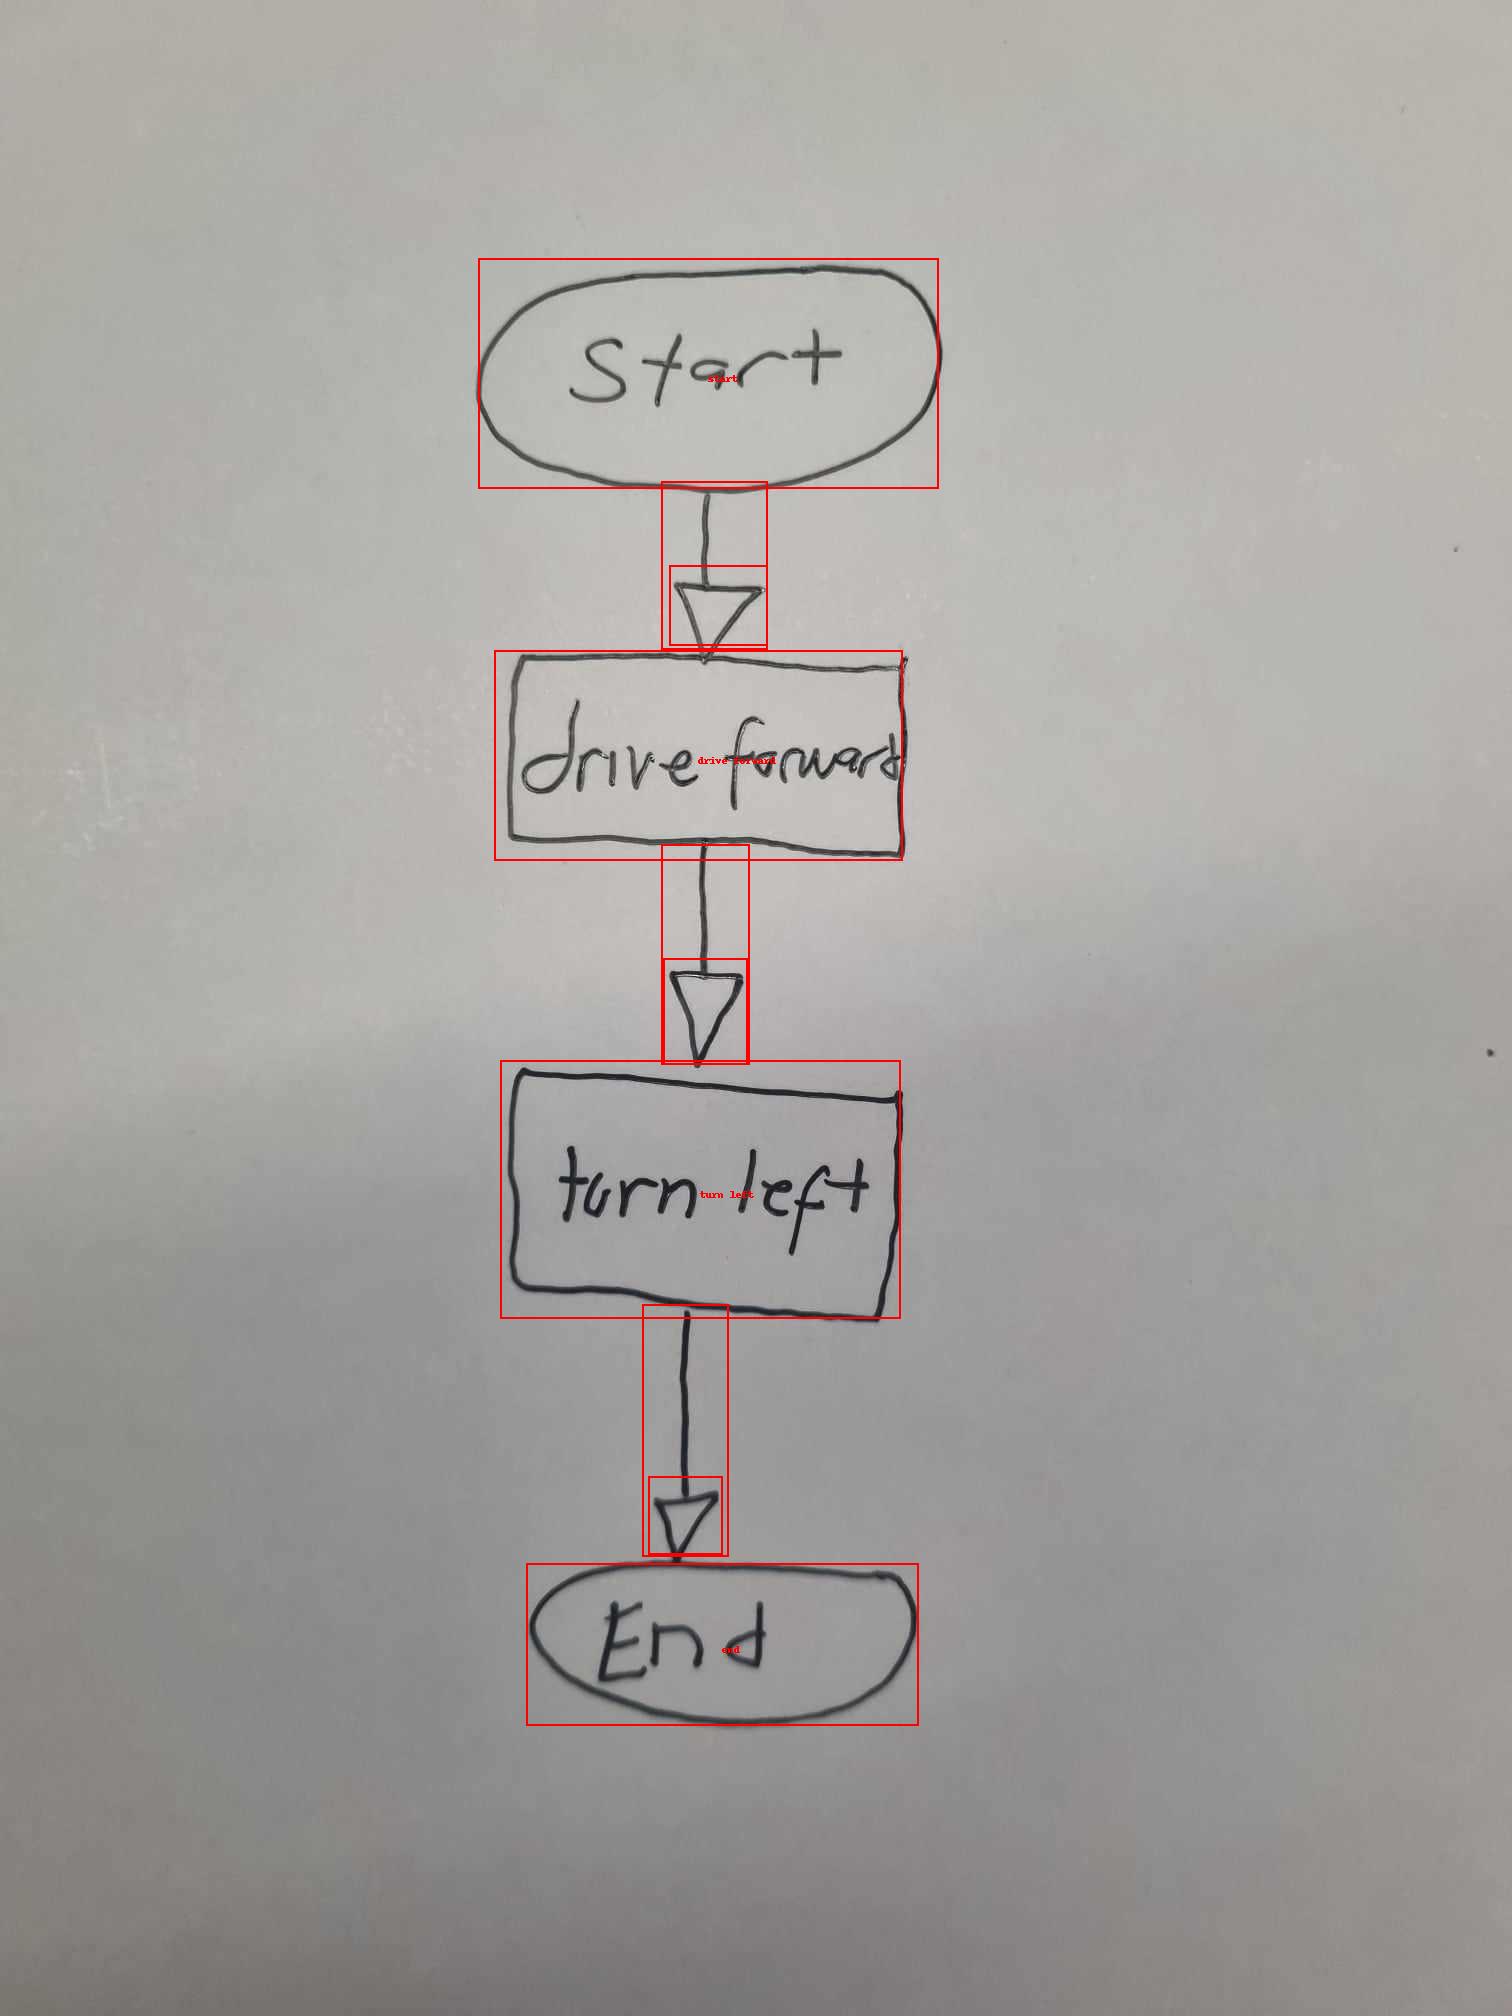 Start
start
drive forward
drive forward
turn left
turn left
End
end